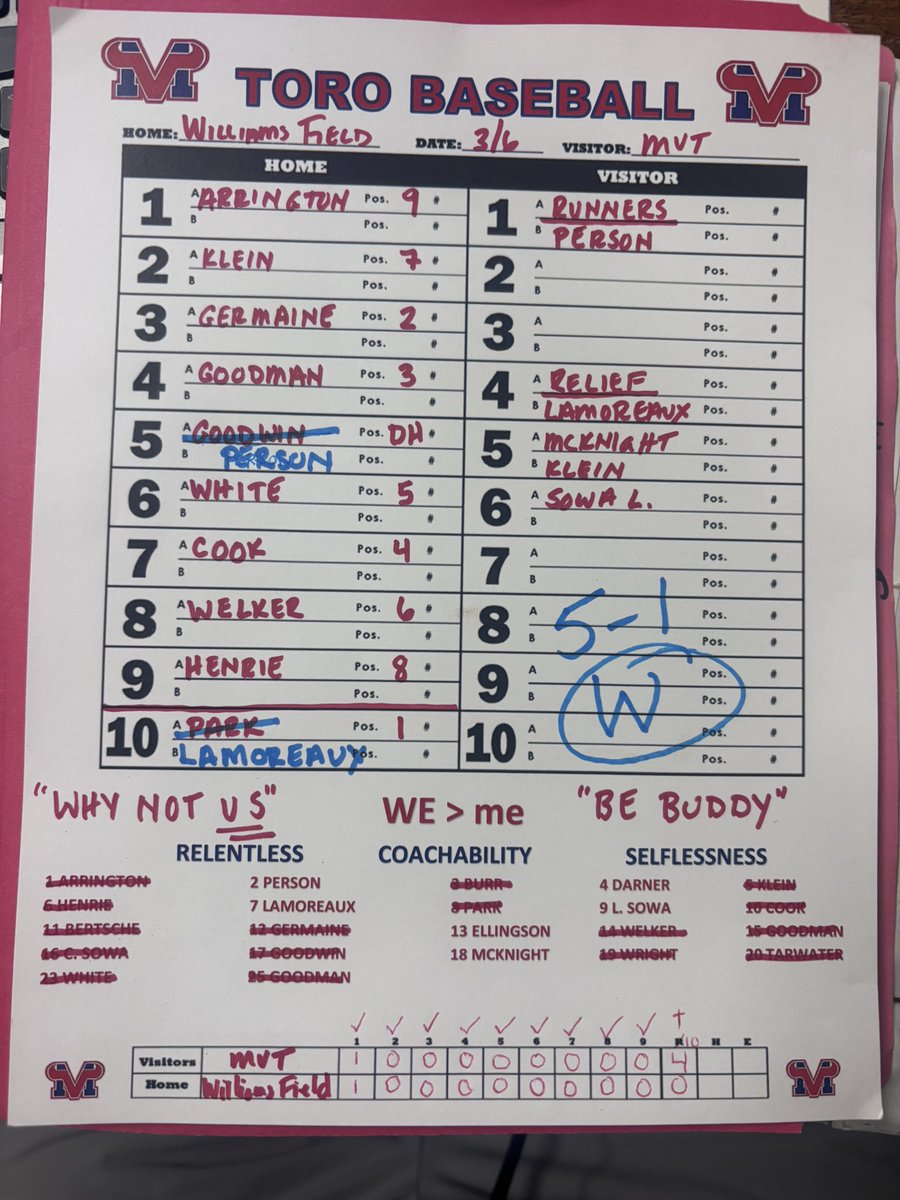 TORO BASEBALL
HOME: WILLIAMS FIELD DATE: 3/6 VISITOR: MVT
HOME VISITOR
1 A ARRINGTON Pos. 9 # 1 A RUNNERS Pos. #
B Pos. # B PERSON Pos. #
2 A KLEIN Pos. 7 # 2 A Pos. #
B Pos. # B Pos. #
3 A GERMAINE Pos. 2 # 3 A Pos. #
B Pos. # B Pos. #
4 A GOODMAN Pos. 3 # 4 A RELIEF Pos. #
B Pos. # B LAMOREAUX Pos. #
5 A GOODWIN Pos. DH # 5 A MCKNIGHT Pos. #
B PERSON Pos. # B KLEIN Pos. #
6 A WHITE Pos. 5 # 6 A SOWA L. Pos. #
B Pos. # B Pos. #
7 A COOK Pos. 4 # 7 A Pos. #
B Pos. # B Pos. #
8 A WELKER Pos. 6 # 8 A 5-1 Pos. #
B Pos. # B Pos. #
9 A HENRIE Pos. 8 # 9 A W Pos. #
B Pos. # B Pos. #
10 A PARK Pos. 1 # 10 A Pos. #
B LAMOREAUX Pos. # B Pos. #
"WHY NOT US" WE > me "BE BUDDY"
RELENTLESS COACHABILITY SELFLESSNESS
1 ARRINGTON 2 PERSON 3 BURR 4 DARNER 5 KLEIN
6 HENRIE 7 LAMOREAUX 8 PARK 9 L. SOWA 10 COOK
11 BERTSCHE 12 GERMAINE 13 ELLINGSON 14 WELKER 15 GOODMAN
16 C. SOWA 17 GOODWIN 18 MCKNIGHT 19 WRIGHT 20 TARWATER
23 WHITE 25 GOODMAN
1 2 3 4 5 6 7 8 9 R 10 H E
Visitors MVT 1 0 0 0 0 0 0 0 0 4
Home Williams Field 1 0 0 0 0 0 0 0 0 0